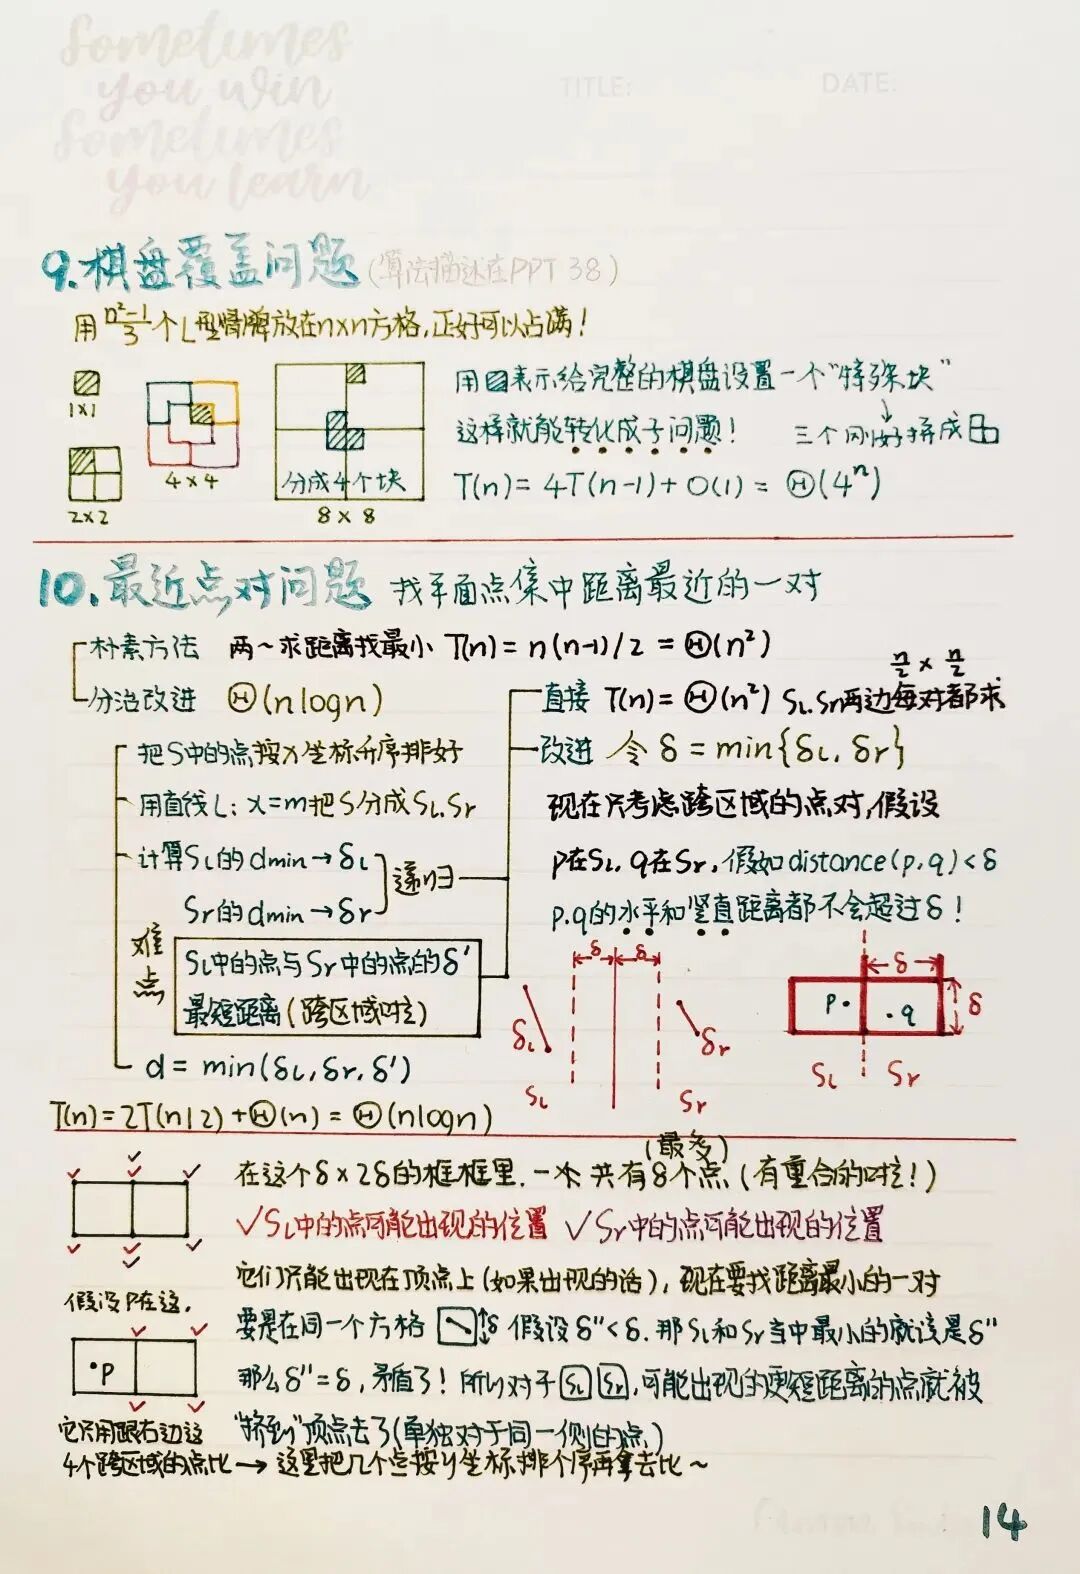 Sometimes
you win
Sometimes
you learn
TITLE:
DATE:
9.棋盘覆盖问题(算法描述在PPT 38)
用 n²-1/3 个L型骨牌放在n×n方格,正好可以占满!
1×1
2×2
4×4
分成4个块
8×8
用▨表示给完整的棋盘设置一个"特殊块"
这样就能转化成子问题!
三个刚好拼成
T(n)=4T(n-1)+O(1)=Θ(4ⁿ)
10.最近点对问题 找平面点集中距离最近的一对
朴素方法 两~求距离找最小 T(n)=n(n-1)/2=Θ(n²)
分治改进 Θ(nlogn)
把S中的点按x坐标升序排好
用直线L:x=m把S分成SL.Sr
计算SL的dmin→δL
Sr的dmin→δr
递归
难点
SL中的点与Sr中的点的δ'
最短距离(跨区域哒)
d=min(δL,δr,δ')
T(n)=2T(n/2)+Θ(n)=Θ(nlogn)
n/2 × n/2
直接 T(n)=Θ(n²) SL.Sr两边每对都求
改进 令δ=min{δL,δr}
现在只考虑跨区域的点对,假设
p在SL,q在Sr,假如distance(p,q)<δ
p.q的水平和竖直距离都不会超过δ!
δ δ
δL
δr
SL
Sr
δ
p
q
δ
SL Sr
(最多)
在这个δ×2δ的框框里.一共有8个点(有重合的哒!)
✓SL中的点可能出现的位置 ✓Sr中的点可能出现的位置
它们只能出现在顶点上(如果出现的话),现在要找距离最小的一对
假设P在这,
要是在同一个方格 δ 假设δ''<δ.那SL和Sr当中最小的就该是δ''
p
那么δ''=δ,矛盾了!所以对于SL Sr,可能出现的更短距离的点就被
它只用跟右边这
"挤到"顶点去了(单独对于同一侧的点)
4个跨区域的点比→这里把几个点按y坐标排个序再拿去比~
14